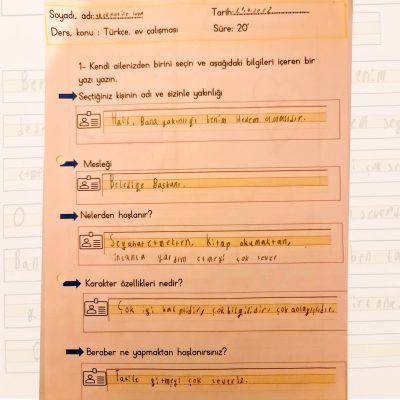 Soyadı, adı:
Tarih:
Ders, konu : Türkçe, ev çalışması
Süre: 20'
1- Kendi ailenizden birini seçin ve aşağıdaki bilgileri içeren bir
yazı yazın.
Seçtiğiniz kişinin adı ve sizinle yakınlığı
Halil. Bana yakınlığı benim dedem olmasıdır.
Mesleği
Belediye Başkanı.
Nelerden hoşlanır?
Seyahat etmekten, kitap okumaktan,
yardım etmeyi çok sever
Karakter özellikleri nedir?
Çok iyi kalplidir, çok bilgilidir, çok anlayışlıdır.
Beraber ne yapmaktan hoşlanırsınız?
Tatile gitmeyi çok severiz.